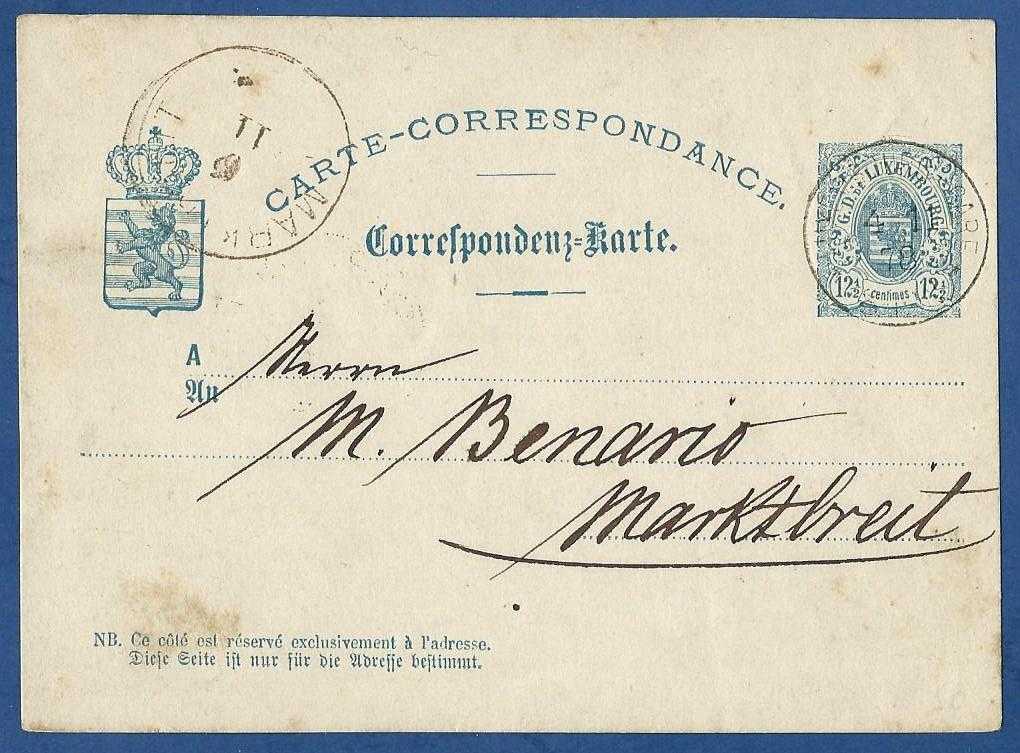 CARTE-CORRESPONDANCE.
Correspondenz-Karte.
G. D. DE LUXEMBOURG
12½ centimes 12½
4 1
78
11
A
An
Herrn
M. Benario
Marktbreit
NB. Ce côté est réservé exclusivement à l'adresse.
Diese Seite ist nur für die Adresse bestimmt.